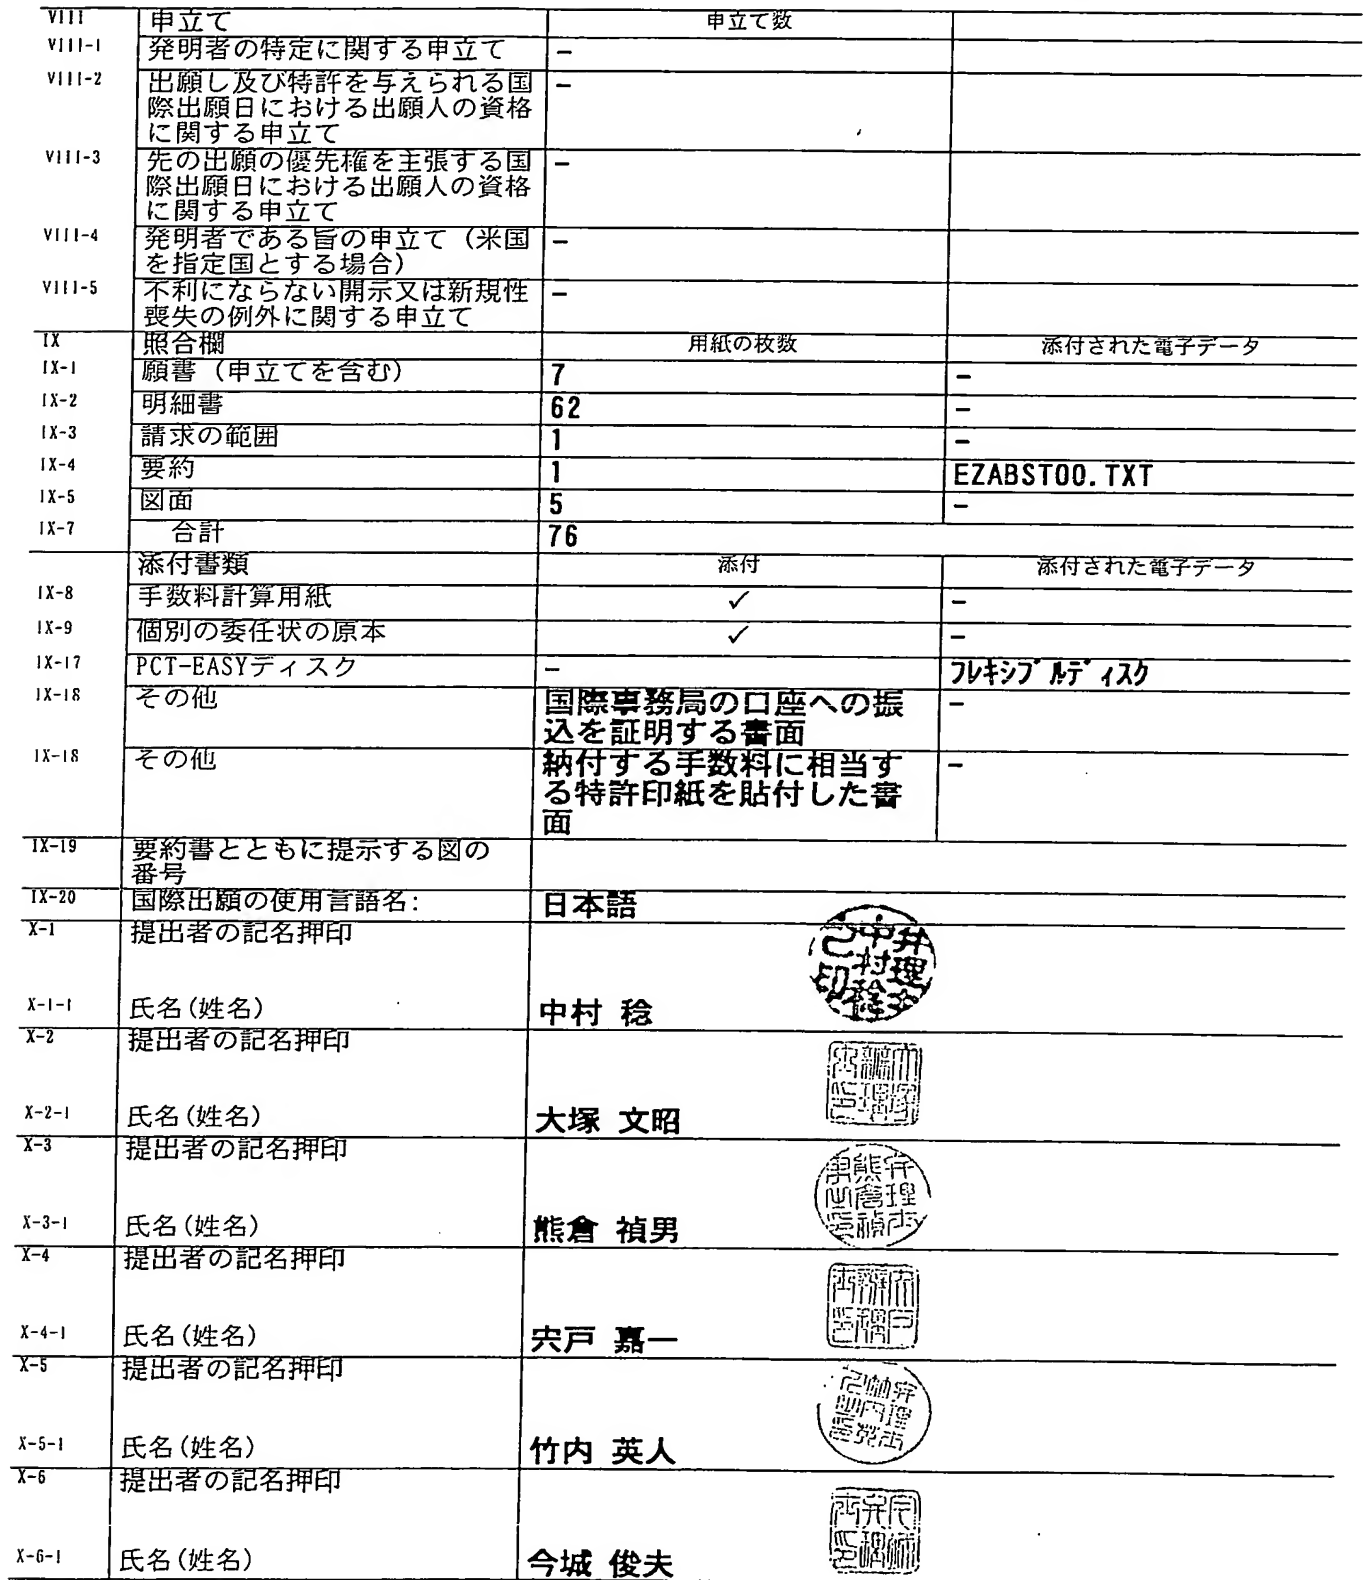 VIII 申立て 申立て数
VIII-1 発明者の特定に関する申立て -
VIII-2 出願し及び特許を与えられる国 -
際出願日における出願人の資格
に関する申立て
VIII-3 先の出願の優先権を主張する国 -
際出願日における出願人の資格
に関する申立て
VIII-4 発明者である旨の申立て（米国 -
を指定国とする場合）
VIII-5 不利にならない開示又は新規性 -
喪失の例外に関する申立て
IX 照合欄 用紙の枚数 添付された電子データ
IX-1 願書（申立てを含む） 7 -
IX-2 明細書 62 -
IX-3 請求の範囲 1 -
IX-4 要約 1 EZABST00.TXT
IX-5 図面 5 -
IX-7 合計 76
添付書類 添付 添付された電子データ
IX-8 手数料計算用紙 ✓ -
IX-9 個別の委任状の原本 ✓ -
IX-17 PCT-EASYディスク - フレキシブルディスク
IX-18 その他 国際事務局の口座への振 -
込を証明する書面
IX-18 その他 納付する手数料に相当す -
る特許印紙を貼付した書
面
IX-19 要約書とともに提示する図の
番号
IX-20 国際出願の使用言語名: 日本語
X-1 提出者の記名押印
X-1-1 氏名(姓名) 中村 稔
X-2 提出者の記名押印
X-2-1 氏名(姓名) 大塚 文昭
X-3 提出者の記名押印
X-3-1 氏名(姓名) 熊倉 禎男
X-4 提出者の記名押印
X-4-1 氏名(姓名) 宍戸 嘉一
X-5 提出者の記名押印
X-5-1 氏名(姓名) 竹内 英人
X-6 提出者の記名押印
X-6-1 氏名(姓名) 今城 俊夫